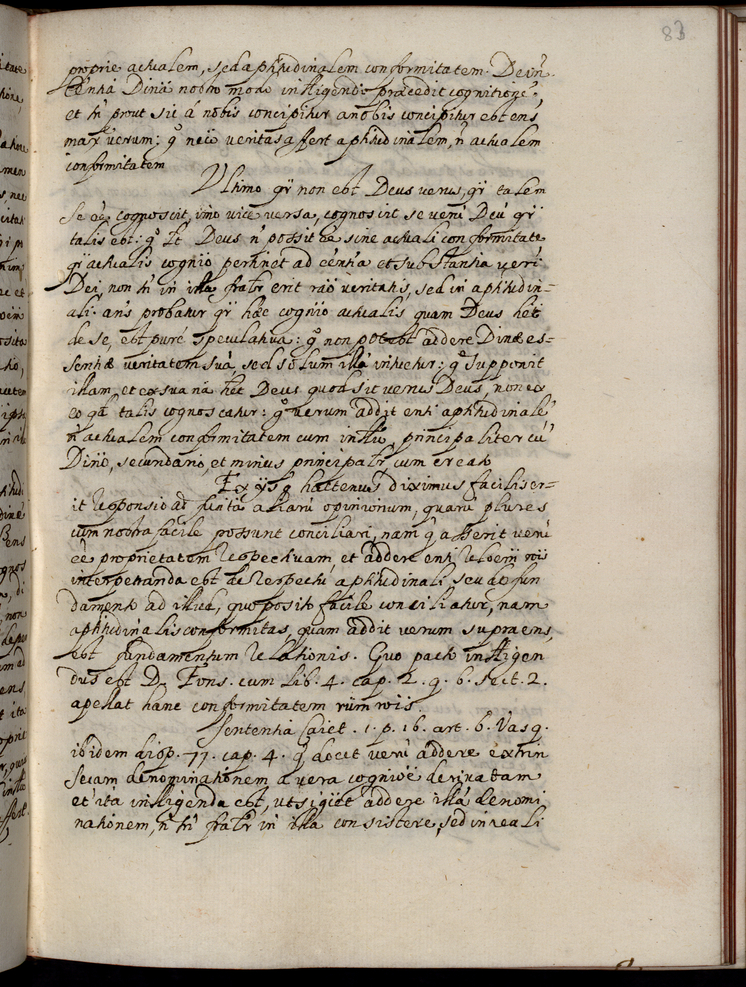 83
proprie actualem, sed aptitudinalem conformitatem. Dein̄
eēntia Diuia nostro modo intelligendi præcedit cognitionē,
et tn̄ prout sic á nobis concipitur a nobis concipitur est ens
max verum: g° neīo veritas affert aptitudinalem, n̄ actualem
conformitatem
Ultimo qr̄ non est Deus verus, qr̄ talem
se eē cognoscit, imo vice versa, cognoscit se verū Deū qr̄
talis est: g° lt̄ Deus n̄ possit eē sine actuali conformitate
qr̄ actualis cognīo pertinet ad eēntia et substantia veri
Dei, non tn̄ in illa fratr̄ erit rāo veritatis, sed in aptitudin=
ali. ans probatur qr̄ hæc cognīo actualis quam Deus hēt
de se, est puré speculatiua: g° non potest addere Diuiæ es=
sentiæ veritatem suā, sed solum illā intuetur: g° supponit
illam, et ex sua nā hēt Deus quod sit verus Deus, non ex
eo qd̄ talis cognoscatur: g° verum addit enti aptitudinalē
n̄ actualem conformitatem cum intllū, principaliter cū
Diuio, secundario, et minus principalr̄ cum creato
Ex ijs q̄ hactenus diximus facilis er=
it responsio ad funtā aliarū opinionum, quarū plures
cum nostra facile possunt conciliari, nam q̄ asserit verū
eē proprietatem respectiuam, et addere enti reloem rois
interpetranda est de respectu aptitudinali seu de fun
damento ad illud, quo posito facile conciliatur, nam
aptitudinalis conformitas, quam addit verum supra ens,
est fundamentum relationis. Quo pacto intelligen
dus est D. Fons. cum lib. 4. cap. 2. q. 6. sect. 2.
apellat hanc conformitatem rūm rois.
Sententia Caiet. 1. p. 16. art. 6. Vasq.
ibidem disp. 77. cap. 4. q̄ docet verū addere extrin
secam denominationem a vera cognioē deriuatam
et ita intelligenda est, ut sigēt addere illā denomi
nationem, n̄ tn̄ fratr̄ in illa consistere, sed in reali